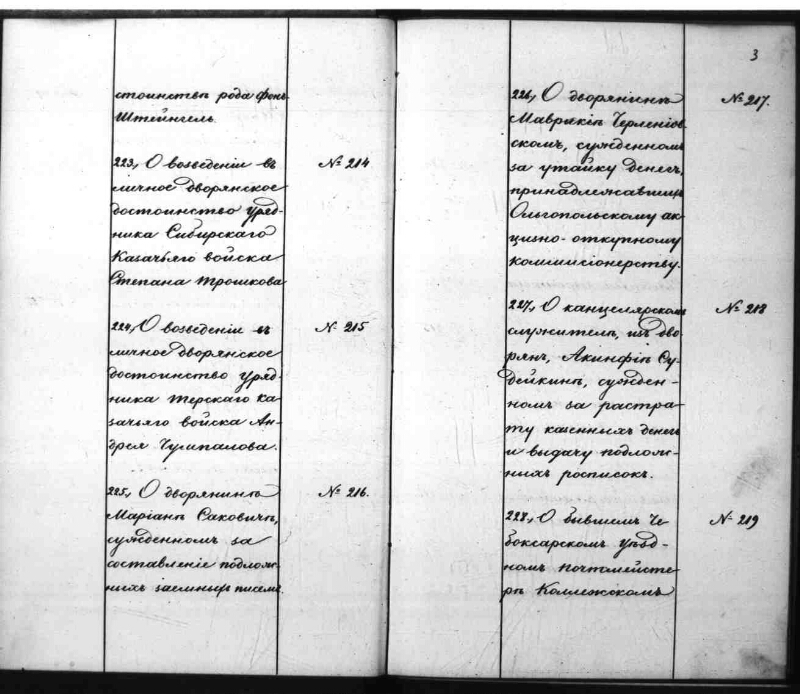 стоинствѣ рода фонъ
Штейнгель.
223, О возведеніи въ № 214
личное дворянское
достоинство Уряд-
ника Сибирскаго
Казачьяго войска
Степана Трошкова
224, О возведеніи въ № 215
личное дворянское
достоинство Уряд-
ника Терскаго Ка-
зачьяго войска Ан-
дрея Чумпалова.
225, О дворянинѣ № 216.
Маріанѣ Саковичѣ,
сужденномъ за
составленіе подлож-
ныхъ заемныхъ писемъ.
3
226, О дворянинѣ № 217.
Маврикіѣ Черленіов-
скомъ, сужденномъ
за утайку денегъ,
принадлежавшихъ
Ольгопольскому ак-
цизно-откупному
коммисіонерству.
227, О канцелярскомъ № 218
служителѣ, изъ дво-
рянъ, Акинфіѣ Су-
дейкинѣ, сужден-
номъ за растра-
ту казенныхъ денегъ
и выдачу подлож-
ныхъ росписокъ.
228, О бывшемъ Че- № 219
боксарскомъ Уѣзд-
номъ почтмейсте-
рѣ Коллежскомъ